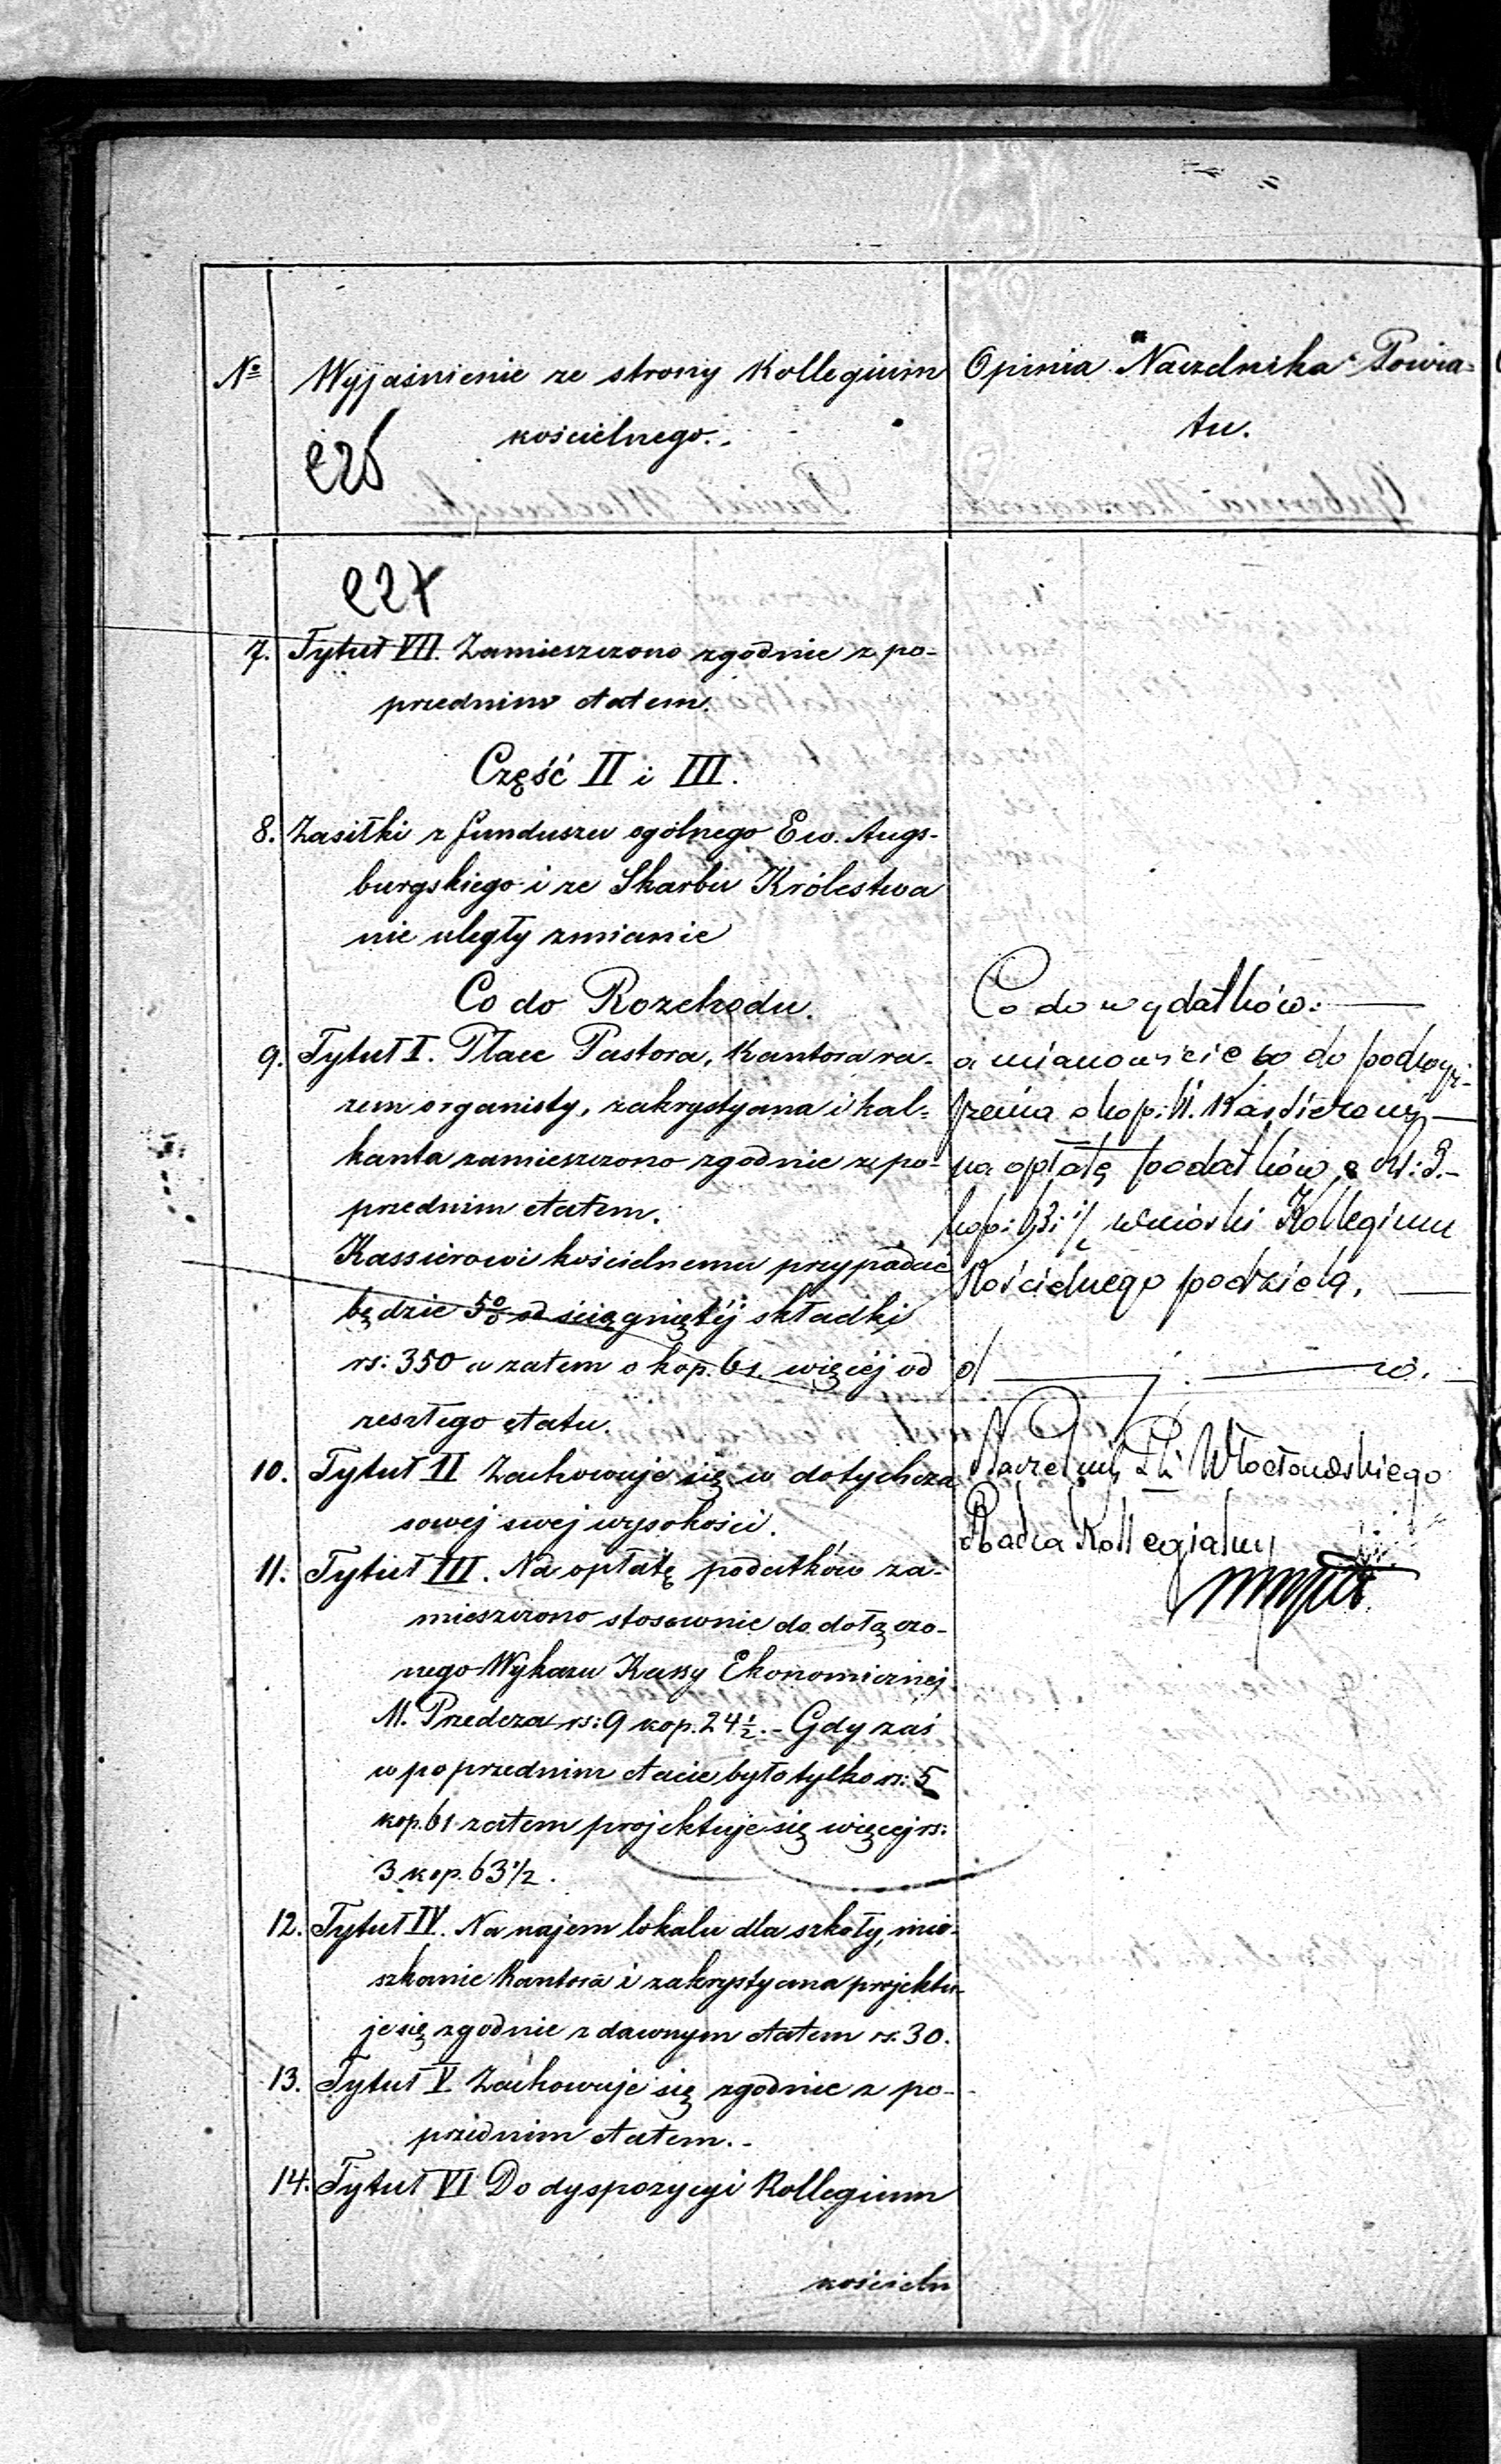 № Wyjaśnienie ze strony Kollegium
kościelnego.
226
227
7. Tytuł VII. Zamieszczono zgodnie z po-
przednim etatem.
Część II i III.
8. Zasiłki z funduszu ogólnego Ew. Augs-
burgskiego i ze Skarbu Królestwa
nie uległy zmianie
Co do Rozchodu.
9. Tytuł I. Płace Pastora, Kantora ra-
zem organisty, zakrystyana i kal-
kanta zamieszczono zgodnie z po-
przednim etatem.
Kassierowi kościelnemu przypadać
będzie 5% od ściągniętéj składki
rs: 350 a zatem o kop. 61. więcéj od
zeszłego etatu.
10. Tytuł II Zachowuje się w dotychcza
sowej swej wysokości.
11. Tytuł III. Na opłatę podatków za-
mieszczono stosownie do dołączo-
nego Wykazu Kassy Ekonomicznej
M. Przedcza rs: 9 kop. 24½. - Gdy zaś
w poprzednim etacie było tylko rs: 5
kop. 61 zatem projektuje się więcej rs:
3 kop. 63½.
12. Tytuł IV. Na najem lokalu dla szkoły, mie-
szkanie Kantora i zakrystyana projektu-
je się zgodnie z dawnym etatem rs. 30.
13. Tytuł V Zachowuje się zgodnie z po-
przednim etatem. -
14. Tytuł VI Do dyspozycyi Kollegium
kościeln
Opinia Naczelnika Powia-
tu.
Co do wydatków:
a mianowicie co do podwyż-
szenia o kop: 61. Kassierowi
na opłatę podatków o Rs: 3.-
kop: 63: ½ wnioski Kollegium
Kościelnego podziela.
Naczelnik Ptu Włocławskiego
Radca Kollegialny